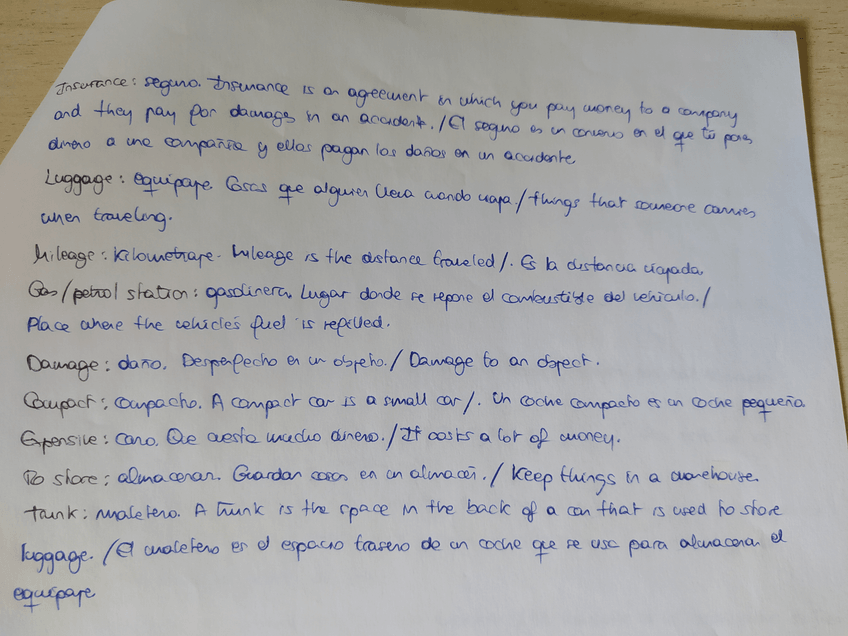 Insurance: seguro. Insurance is an agreement in which you pay money to a company
and they pay for damages in an accident. / El seguro es un convenio en el que tú pagas
dinero a una compañía y ellos pagan los daños en un accidente
Luggage: equipaje. Cosas que alguien lleva cuando viaja. / things that someone carries
when traveling.
Mileage: kilometraje. Mileage is the distance traveled /. Es la distancia viajada.
Gas / petrol station: gasolinera. Lugar donde se repone el combustible del vehículo. /
Place where the vehicle's fuel is refilled.
Damage: daño. Desperfecto en un objeto. / Damage to an object.
Compact: compacto. A compact car is a small car /. Un coche compacto es un coche pequeño.
Expensive: caro. Que cuesta mucho dinero. / It costs a lot of money.
To store: almacenar. Guardar cosas en un almacén. / Keep things in a warehouse.
Trunk: maletero. A trunk is the space in the back of a car that is used to store
luggage. / El maletero es el espacio trasero de un coche que se usa para almacenar el
equipaje